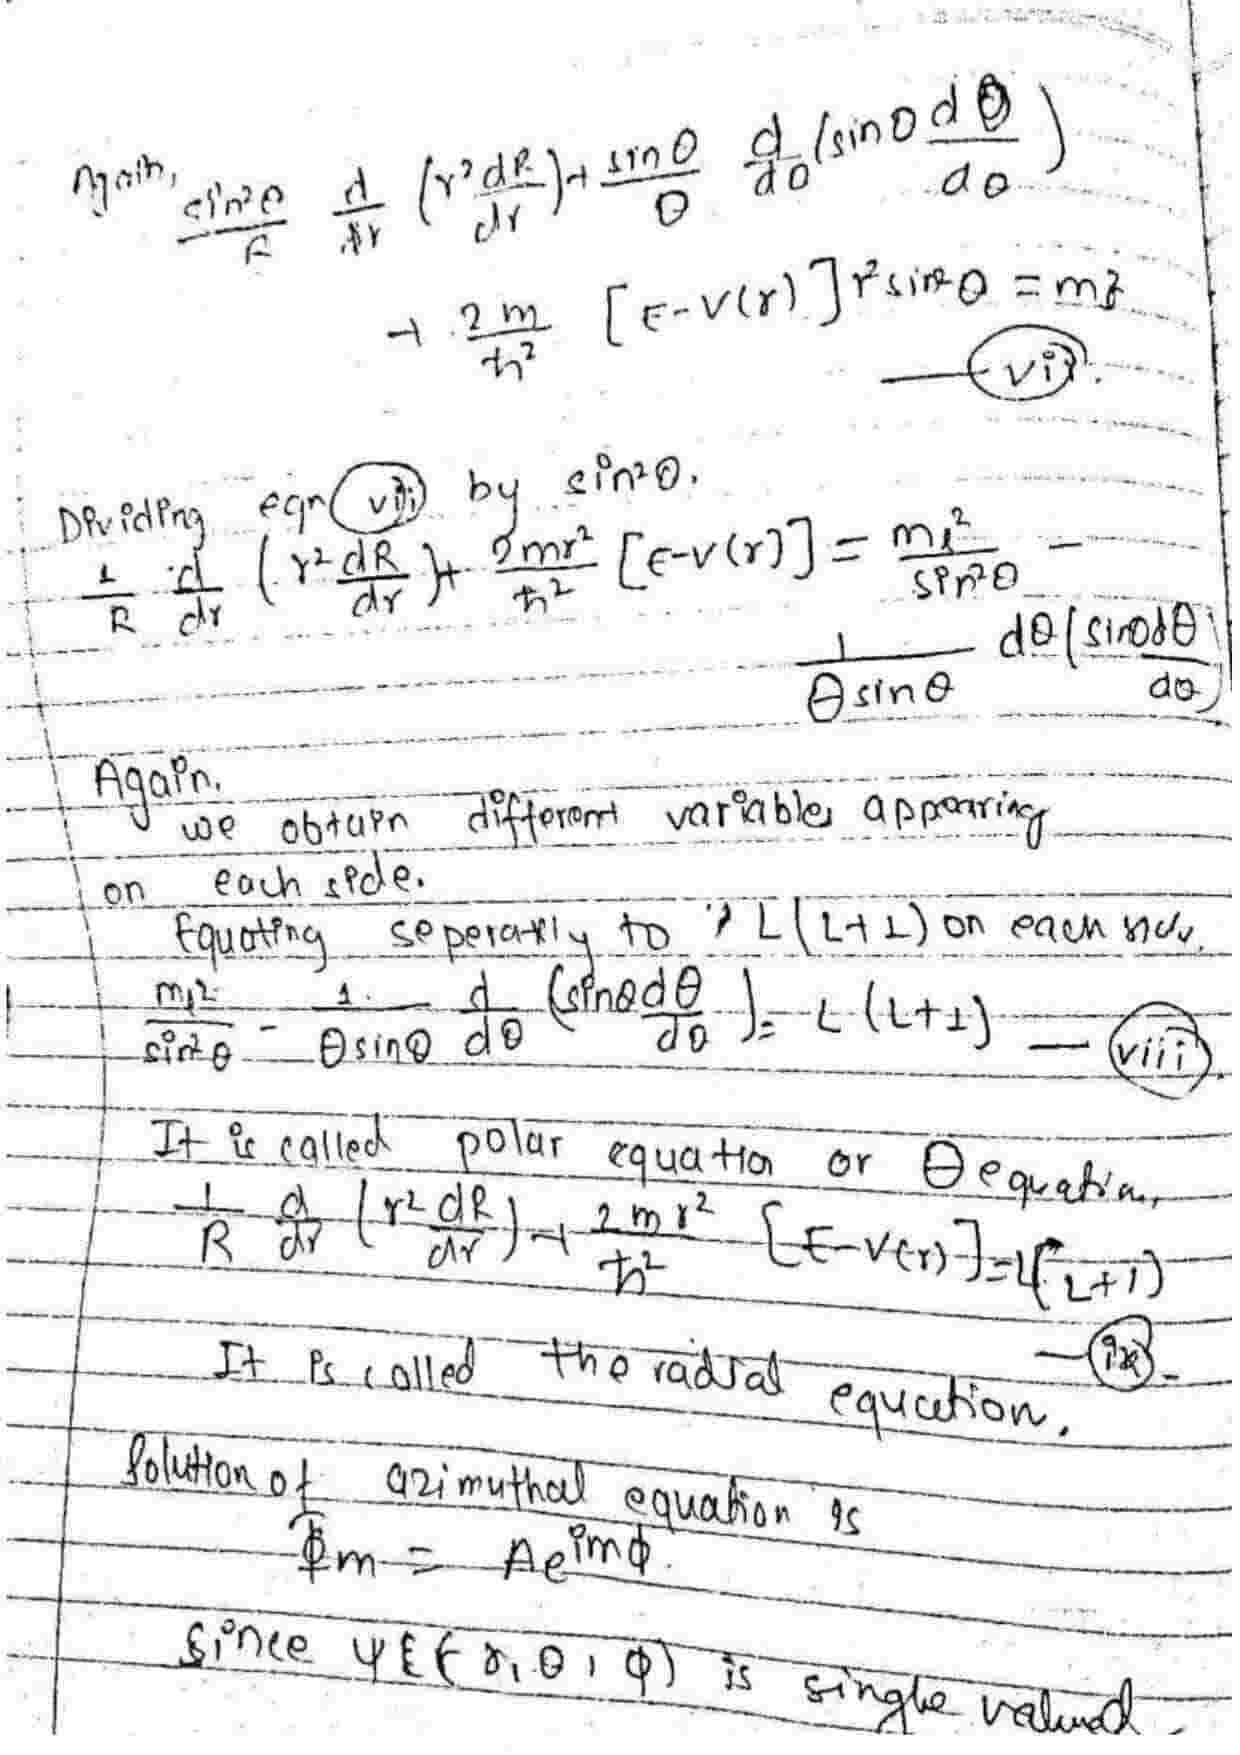 Again, sin²θ/R d/dr (r² dR/dr) + sinθ/Θ d/dθ (sinθ dΘ/dθ)
+ 2m/ħ² [E-V(r)] r² sin²θ = ml²
— (vii).
Dividing eqn (vii) by sin²θ.
1/R d/dr (r² dR/dr) + 2mr²/ħ² [E-V(r)] = ml²/sin²θ -
1/Θsinθ dθ (sinθ dΘ/dθ)
Again,
we obtain different variables appearing
on each side.
Equating seperately to L(L+1) on each side.
ml²/sin²θ - 1/Θsinθ d/dθ (sinθ dΘ/dθ) = L(L+1) — (viii).
It is called polar equation or Θ equation,
1/R d/dr (r² dR/dr) + 2mr²/ħ² [E-V(r)] = L(L+1)
— (ix).
It is called the radial equation.
Solution of azimuthal equation is
Φm = Ae^imφ.
Since ψ (r, θ, φ) is single valued.